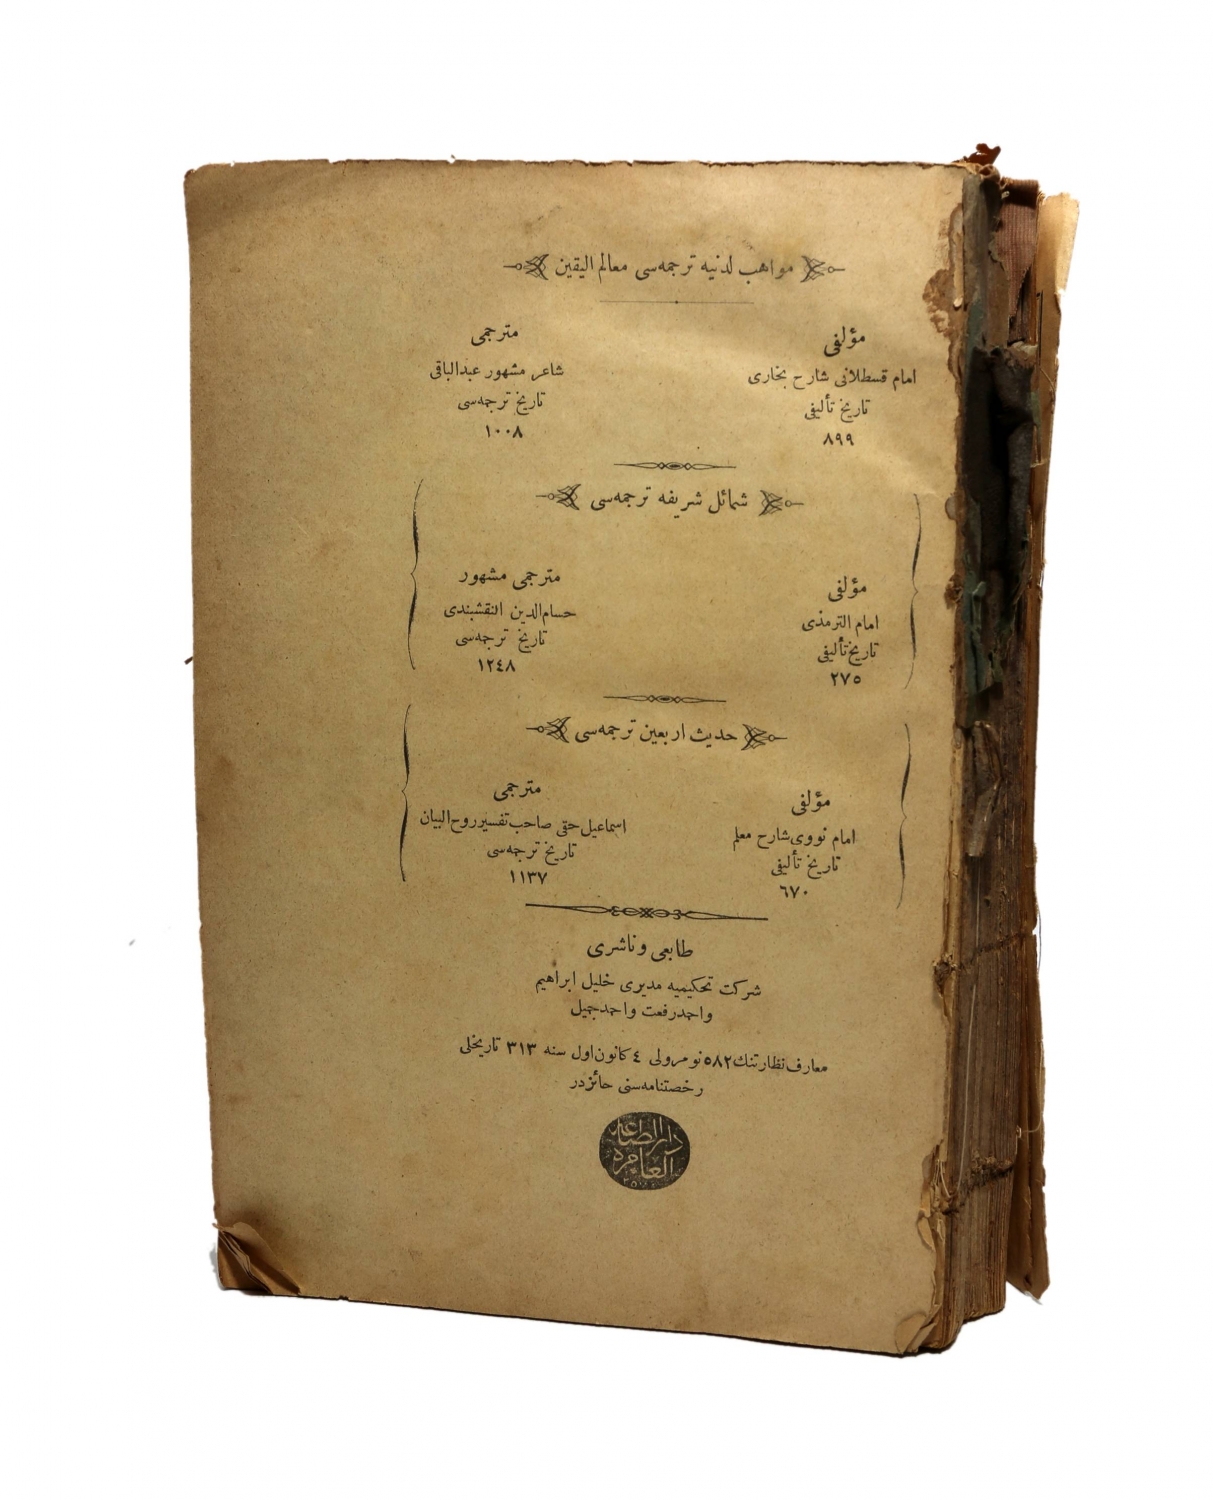 مواهب لدنیه ترجمه‌سی معالم الیقین
مؤلفی
امام قسطلانی شارح بخاری
تاریخ تألیفی
٨٩٩
مترجمی
شاعر مشهور عبدالباقی
تاریخ ترجمه‌سی
١٠٠٨
شمائل شریفه ترجمه‌سی
مؤلفی
امام الترمذی
تاریخ تألیفی
٢٧٥
مترجمی مشهور
حسام‌الدین النقشبندی
تاریخ ترجمه‌سی
١٢٤٨
حدیث اربعین ترجمه‌سی
مؤلفی
امام نووی شارح معلم
تاریخ تألیفی
٦٧٠
مترجمی
اسماعیل حقی صاحب تفسیر روح البیان
تاریخ ترجمه‌سی
١١٣٧
طابعی و ناشری
شرکت تحکیمیه مدیری خلیل ابراهیم
واحمدرفعت واحمدجمیل
معارف نظارتنك ٥٨٢ نومرولی ٤ کانون اول سنه ٣١٣ تاریخلی
رخصتنامه‌سنی حائزدر
دار الطباعه
العامره